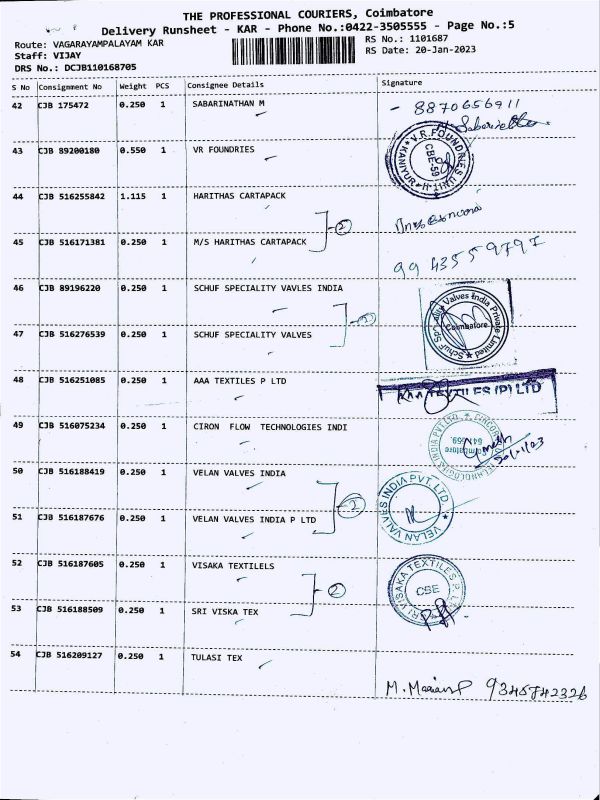 THE PROFESSIONAL COURIERS, Coimbatore
Delivery Runsheet - KAR - Phone No.:0422-3505555 - Page No.:5
Route: VAGARAYAMPALAYAM KAR
RS No.: 1101687
Staff: VIJAY
RS Date: 20-Jan-2023
DRS No.: DCJB110168705
S No Consignment No Weight PCS Consignee Details Signature
42 CJB 175472 0.250 1 SABARINATHAN M - 8870656911
43 CJB 89200180 0.550 1 VR FOUNDRIES
V.R.FOUNDRIES CBE-59 KANIYUR
44 CJB 516255842 1.115 1 HARITHAS CARTAPACK
2
45 CJB 516171381 0.250 1 M/S HARITHAS CARTAPACK 9943559797
46 CJB 89196220 0.250 1 SCHUF SPECIALITY VAVLES INDIA
Schuf Speciality Valves India Private Limited Coimbatore
47 CJB 516276539 0.250 1 SCHUF SPECIALITY VALVES
48 CJB 516251085 0.250 1 AAA TEXTILES P LTD
AAA TEXTILES (P) LTD
49 CJB 516075234 0.250 1 CIRON FLOW TECHNOLOGIES INDI
20/1/23
50 CJB 516188419 0.250 1 VELAN VALVES INDIA
2
VELAN VALVES INDIA PVT. LTD.
51 CJB 516187676 0.250 1 VELAN VALVES INDIA P LTD
52 CJB 516187605 0.250 1 VISAKA TEXTILELS
2
SRI VISAKA TEXTILES P. LTD CBE
53 CJB 516188509 0.250 1 SRI VISKA TEX
54 CJB 516209127 0.250 1 TULASI TEX
9345742326